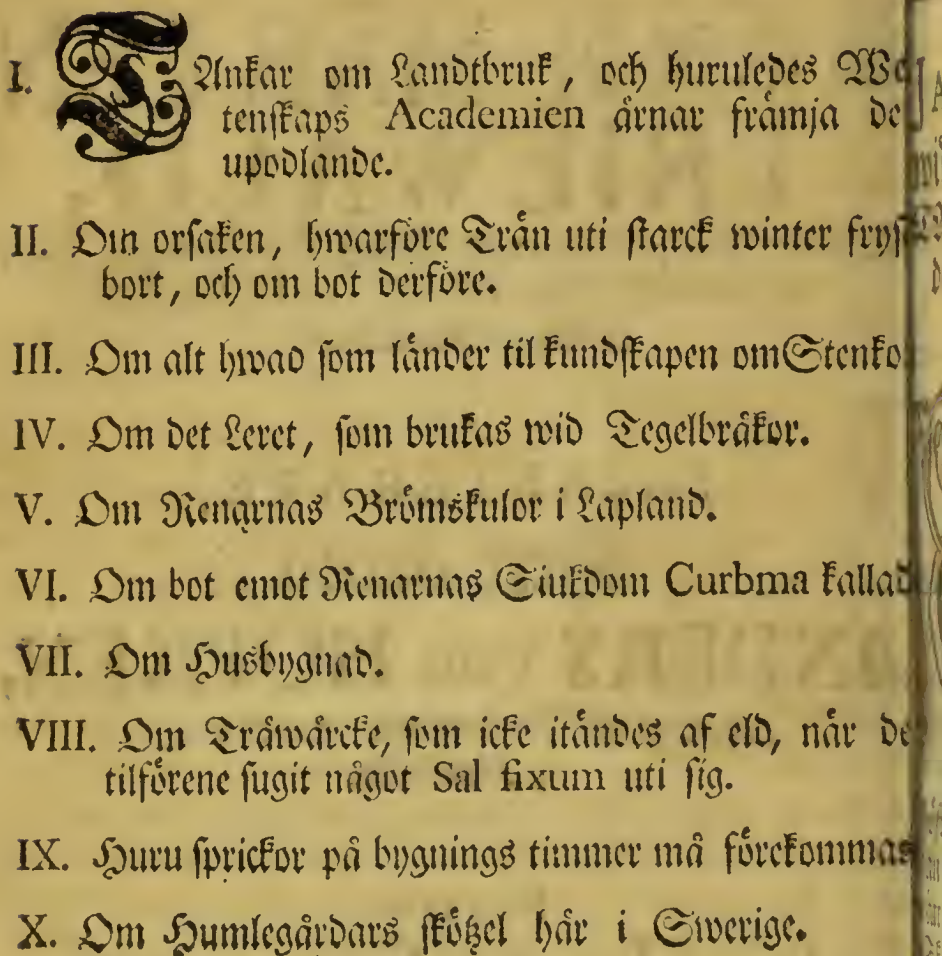 I. TAnkar om Landtbruk, och huruledes We
tenskaps Academien ärnar främja de
upodlande.
II. Om orsaken, hwarföre Trän uti starck winter frys
bort, och om bot derföre.
III. Om alt hwad som länder til kundskapen om Stenko
IV. Om det Leret, som brukas wid Tegelbråkor.
V. Om Renarnas Brömskulor i Lapland.
VI. Om bot emot Renarnas Siukdom Curbma kallad
VII. Om Husbygnad.
VIII. Om Träwärcke, som icke itändes af eld, när de
tilförene sugit något Sal fixum uti sig.
IX. Huru sprickor på bygnings timmer må förekommas
X. Om Humlegårdars skötzel här i Swerige.